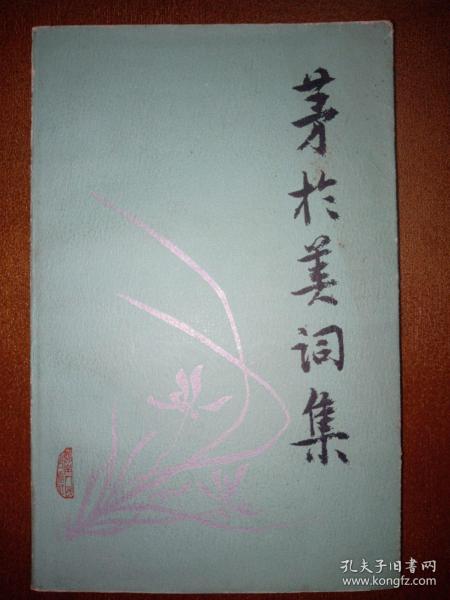 茅於美词集
孔夫子旧书网
www.kongfz.com